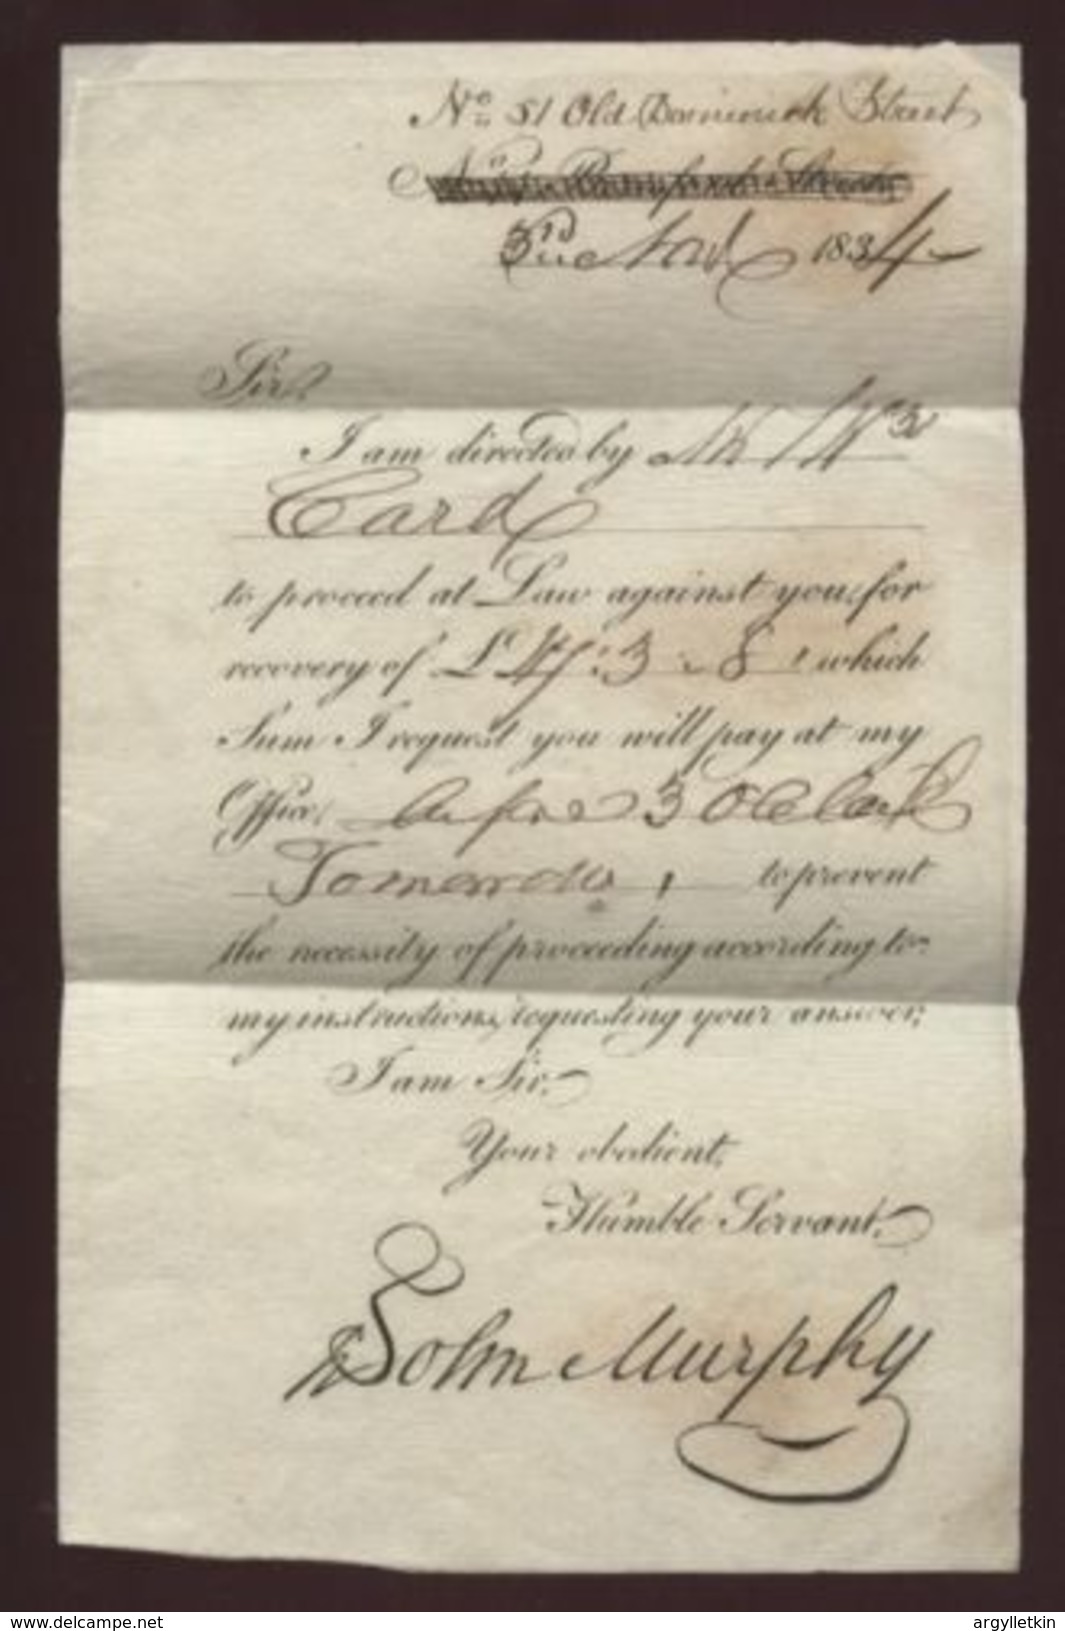 No 51 Old Dominick Street
3rd 1834
Sir,
I am directed by Mr Wm
Card
to proceed at Law against you, for
recovery of £ : 3 - 8 which
Sum I request you will pay at my
Office, before 3 O Clock
Tomorrow, to prevent
the necessity of proceeding according to
my instructions, requesting your answer;
I am Sir,
Your obedient,
Humble Servant,
John Murphy
delcampe.net
argylletkin